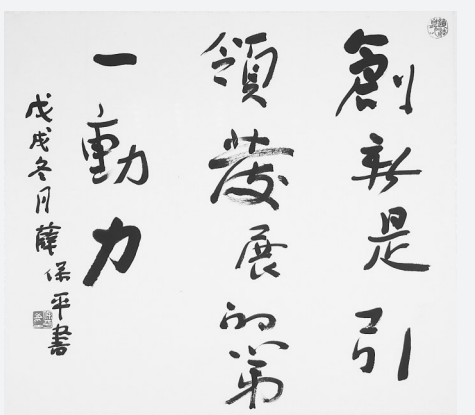 創新是引
領發展的第
一動力
戊戌冬月薛保平書